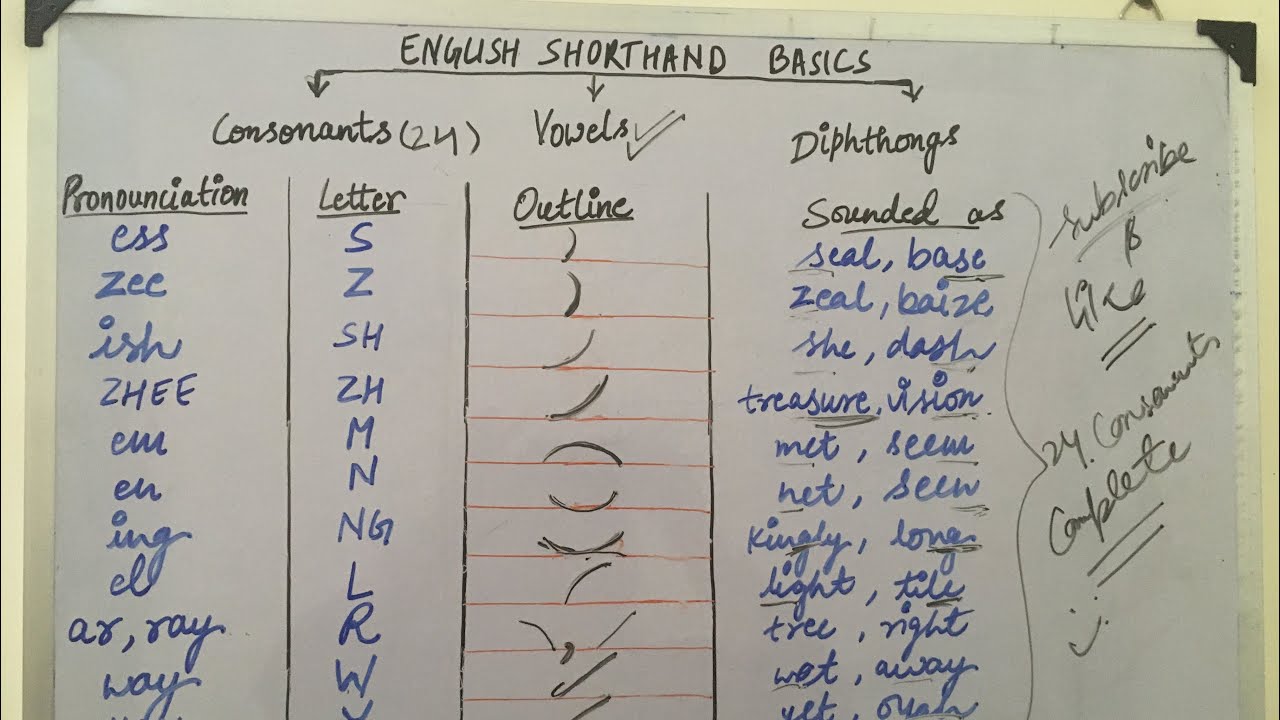 ENGLISH SHORTHAND BASICS
Consonants (24) Vowels Diphthongs
Pronounciation Letter Outline Sounded as
ess S seal, base
Zee Z Zeal, baize
ish SH she, dash
ZHEE ZH treasure, vision
em M met, seem
en N net, seen
ing NG Kingly, long
el L light, tile
ar, ray R tree, right
way W wet, away
yet,
Subscribe
&
like
24. Consonants
Complete